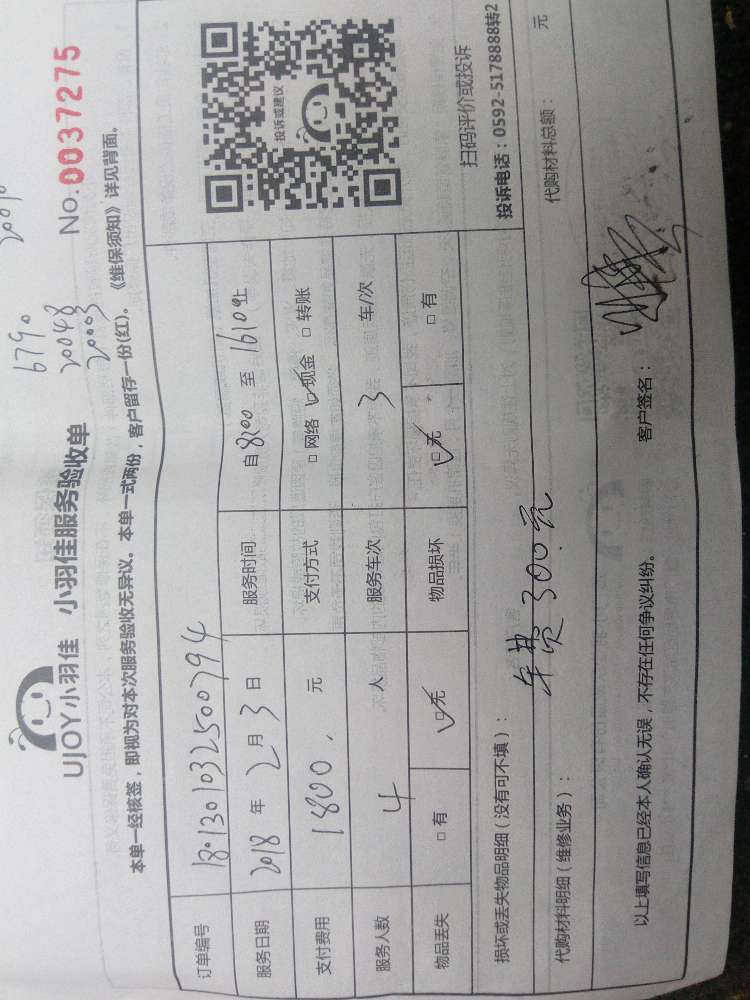 6790
20048
20003
UJOY小羽佳 小羽佳服务验收单
No:0037275
本单一经核签，即视为对本次服务验收无异议。本单一式两份，客户留存一份(红)。《维保须知》详见背面。
订单编号 180130103250 0794
服务日期 2018 年 2 月 3 日 服务时间 自 8:00 至 16:10 止
支付费用 1800. 元 支付方式 □网络 ☑现金 □转账
服务人数 4 人 服务车次 3 车/次
物品丢失 □有 ☑无 物品损坏 ☑无 □有
投诉或建议
扫码评价或投诉
投诉电话：0592-5178888转2
损坏或丢失物品明细（没有可不填）：
车费300元
代购材料明细（维修业务）： 代购材料总额： 元
以上填写信息已经本人确认无误，不存在任何争议纠纷。 客户签名：